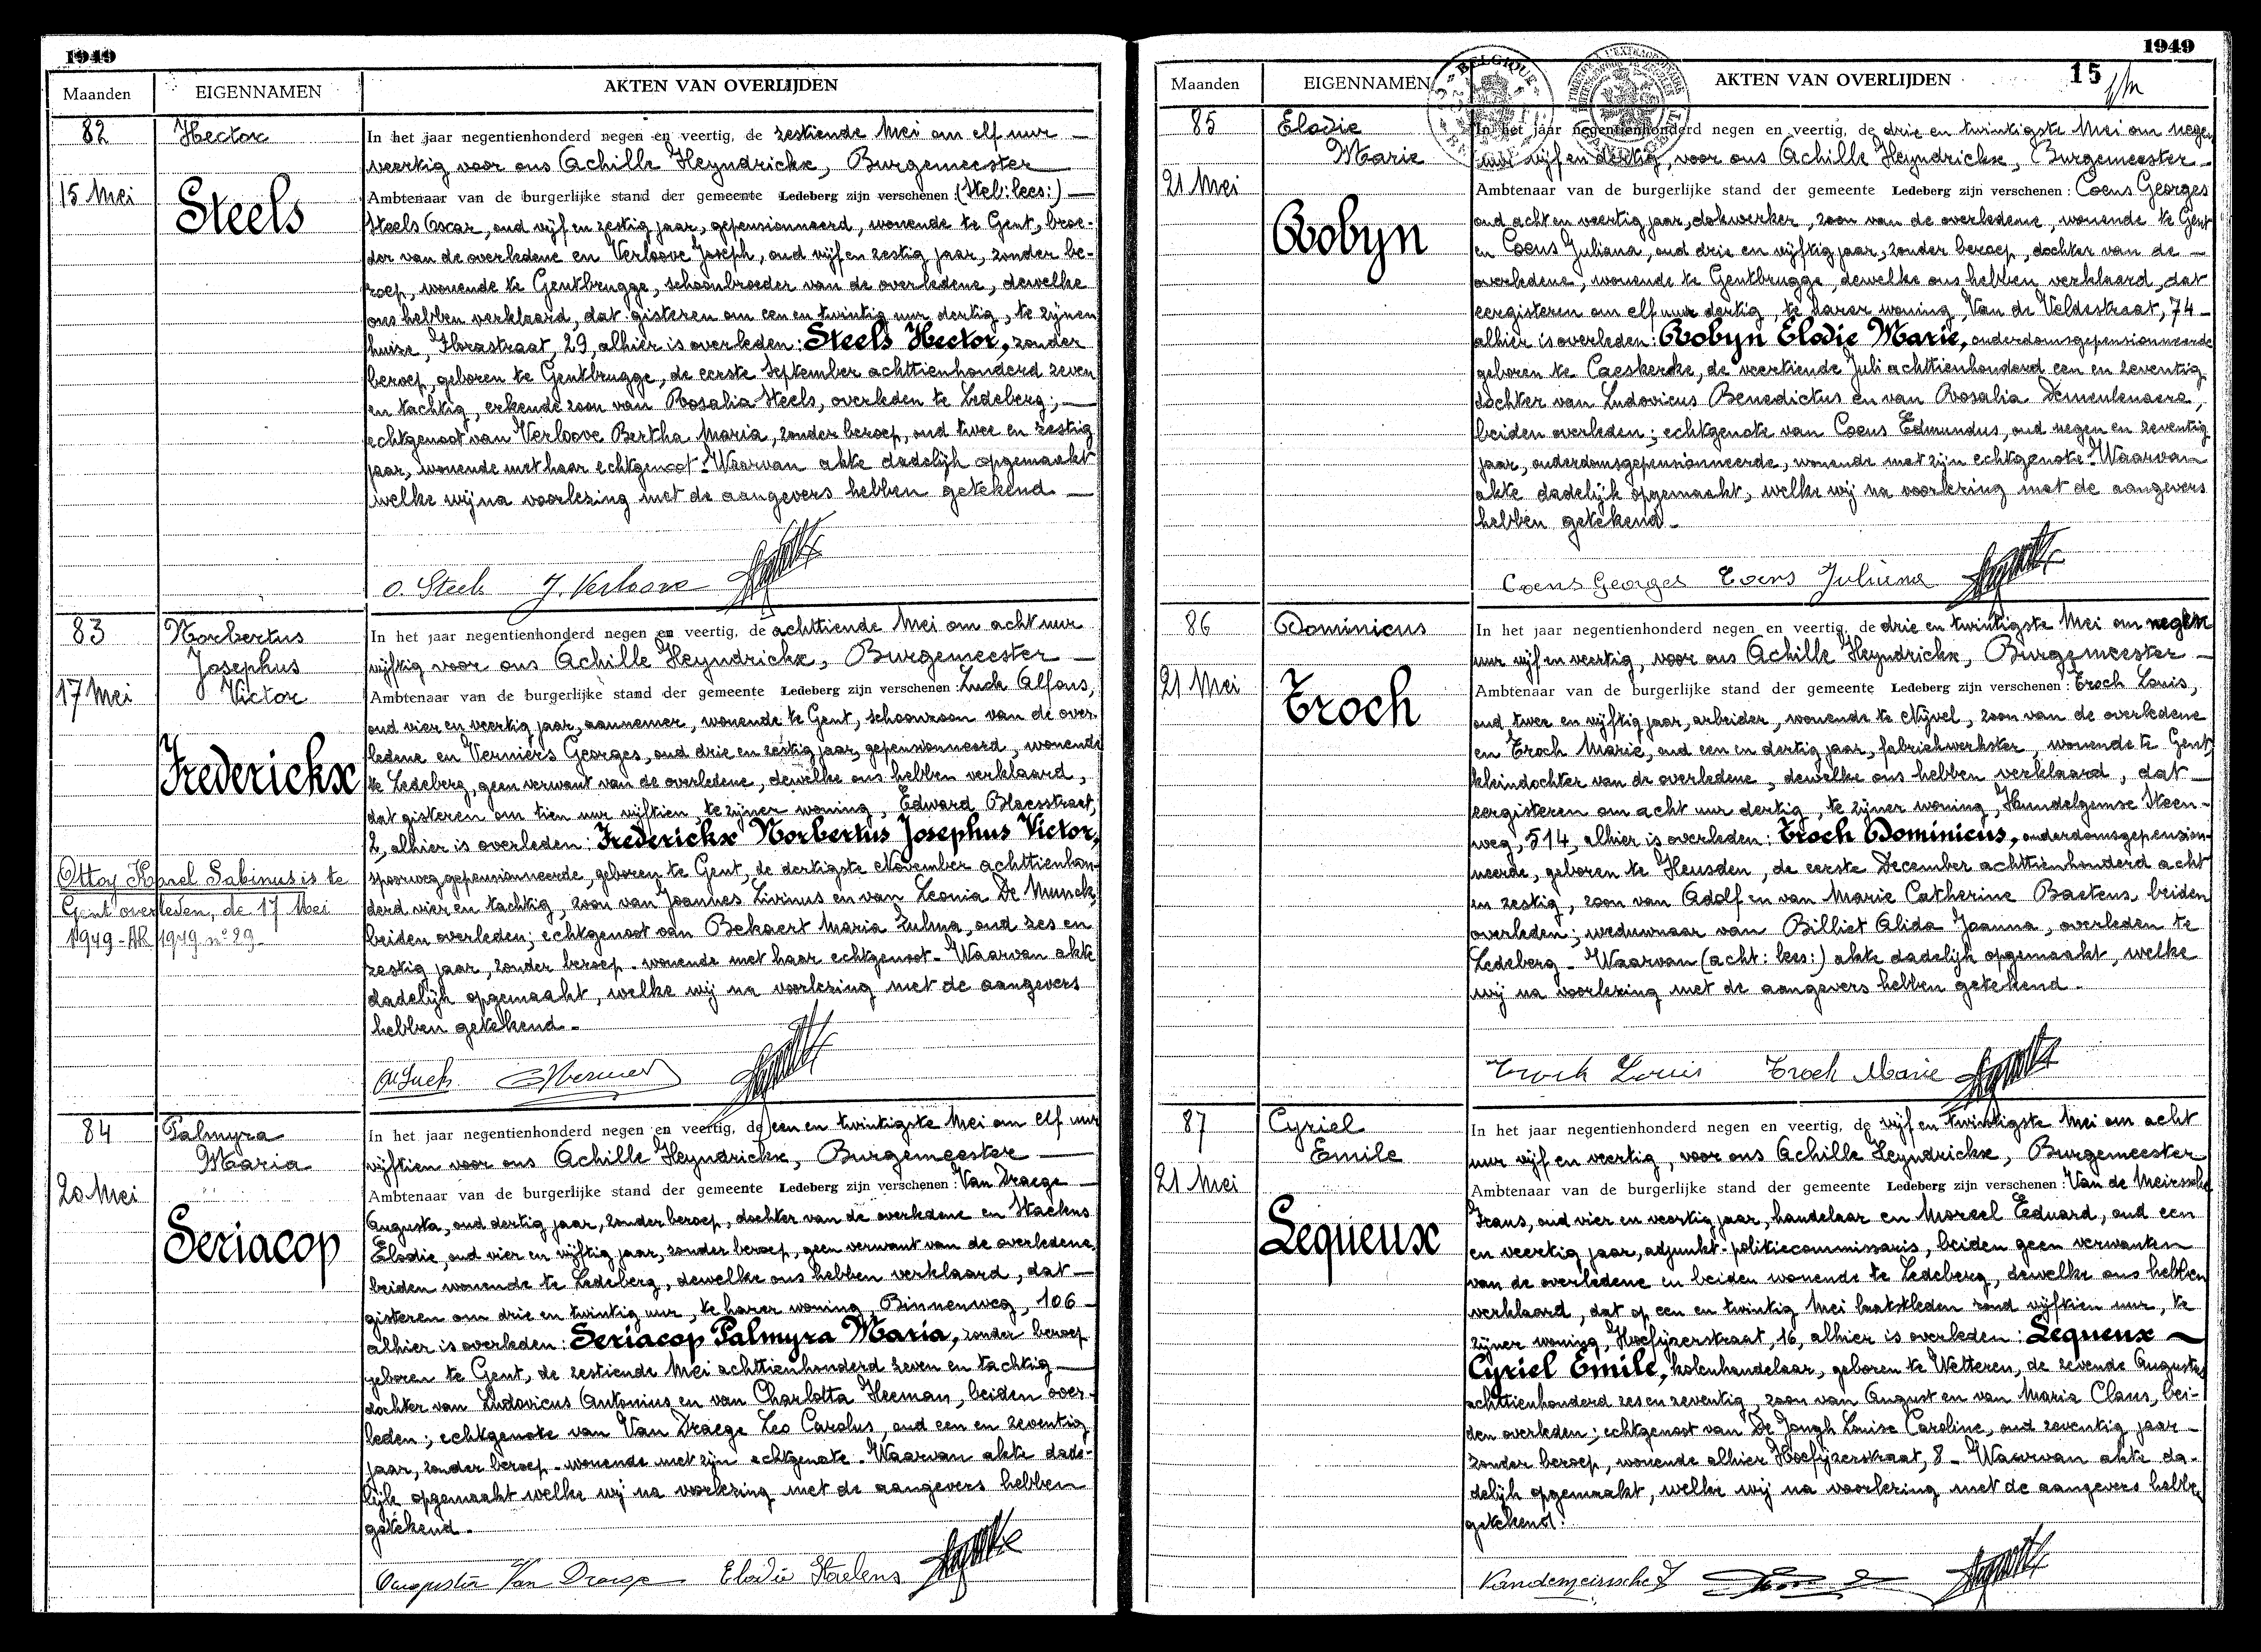 1949
Maanden
EIGENNAMEN
AKTEN VAN OVERLIJDEN
82
Hector
15 Mei
Steels
In het jaar negentienhonderd negen en veertig, de zestiende Mei om elf uur
veertig voor ons Achille Heyndrickx, Burgemeester
Ambtenaar van de burgerlijke stand der gemeente Ledeberg zijn verschenen : (Stel: lees:)
Steels Oscar, oud vijf en zestig jaar, gepensionneerd, wonende te Gent, broe-
der van de overledene en Verloove Joseph, oud vijf en zestig jaar, zonder be-
roep, wonende te Gentbrugge, schoonbroeder van de overledene, dewelke
ons hebben verklaard, dat gisteren om een en twintig uur dertig, te zijnen
huize, Florastraat, 29, alhier is overleden: Steels Hector, zonder
beroep, geboren te Gentbrugge, de eerste September achttienhonderd zeven
en tachtig, erkende zoon van Rosalia Steels, overleden te Ledeberg;
echtgenoot van Verloove Bertha Maria, zonder beroep, oud twee en zestig
jaar, wonende met haar echtgenoot. Waarvan akte dadelijk opgemaakt
welke wij na voorlezing met de aangevers hebben getekend
O. Steels J. Verloove
83
Norbertus
Josephus
Victor
17 Mei
Frederickx
Ottoy Karel Sabinus is te
Gent overleden, de 17 Mei
1949 - AR 1949 n° 29
In het jaar negentienhonderd negen en veertig, de achttiende Mei om acht uur
vijftig voor ons Achille Heyndrickx, Burgemeester
Ambtenaar van de burgerlijke stand der gemeente Ledeberg zijn verschenen : Luck Alfons,
oud vier en veertig jaar, aannemer, wonende te Gent, schoonzoon van de over-
ledene en Verniers Georges, oud drie en zestig jaar, gepensionneerd, wonende
te Ledeberg, geen verwant van de overledene, dewelke ons hebben verklaard,
dat gisteren om tien uur vijftien, te zijner woning, Edward Blaesstraat,
2, alhier is overleden: Frederickx Norbertus Josephus Victor,
spoorweggepensionneerde, geboren te Gent, de dertigste November achttienhon-
derd vier en tachtig, zoon van Joannes Livinus en van Leonia De Munck,
beiden overleden; echtgenoot van Bekaert Maria Zulma, oud zes en
zestig jaar, zonder beroep. wonende met haar echtgenoot. Waarvan akte
dadelijk opgemaakt, welke wij na voorlezing met de aangevers
hebben getekend.
A Luck
84
Palmyra
Maria
20 Mei
Seriacop
In het jaar negentienhonderd negen en veertig, de een en twintigste Mei om elf uur
vijftien voor ons Achille Heyndrickx, Burgemeester
Ambtenaar van de burgerlijke stand der gemeente Ledeberg zijn verschenen : Van Draege
Augusta, oud dertig jaar, zonder beroep, dochter van de overledene en Staelens
Elodie, oud vier en vijftig jaar, zonder beroep, geen verwant van de overledene,
beiden wonende te Ledeberg, dewelke ons hebben verklaard, dat
gisteren om drie en twintig uur, te harer woning Binnenweg, 106
alhier is overleden: Seriacop Palmyra Maria, zonder beroep
geboren te Gent, de zestiende Mei achttienhonderd zeven en tachtig
dochter van Ludovicus Antonius en van Charlotta Heeman, beiden over-
leden; echtgenote van Van Draege Leo Carolus, oud een en zeventig
jaar, zonder beroep. wonende met zijn echtgenote. Waarvan akte dade-
lijk opgemaakt welke wij na voorlezing met de aangevers hebben
getekend.
Augusta Van Draege Elodie Staelens
1949
15
Maanden
EIGENNAMEN
AKTEN VAN OVERLIJDEN
BELGIQUE
85
Elodie
Marie
21 Mei
Robyn
In het jaar negentienhonderd negen en veertig, de drie en twintigste Mei om negen
uur vijf en dertig, voor ons Achille Heyndrickx, Burgemeester
Ambtenaar van de burgerlijke stand der gemeente Ledeberg zijn verschenen : Coens Georges
oud acht en veertig jaar, dokwerker, zoon van de overledene, wonende te Gent
en Coens Juliana, oud drie en vijftig jaar, zonder beroep, dochter van de
overledene, wonende te Gentbrugge, dewelke ons hebben verklaard, dat
eergisteren om elf uur dertig, te harer woning, Van de Veldestraat, 74
alhier is overleden: Robyn Elodie Marie, ouderdomsgepensionneerde
geboren te Caeskerke, de veertiende Juli achttienhonderd een en zeventig
dochter van Ludovicus Benedictus en van Rosalia Demeulenaere,
beiden overleden; echtgenote van Coens Edmundus, oud negen en zeventig
jaar, ouderdomsgepensionneerde, wonende met zijn echtgenote. Waarvan
akte dadelijk opgemaakt, welke wij na voorlezing met de aangevers
hebben getekend.
Coens Georges Coens Juliana
86
Dominicus
21 Mei
Troch
In het jaar negentienhonderd negen en veertig, de drie en twintigste Mei om negen
uur vijf en veertig, voor ons Achille Heyndrickx, Burgemeester
Ambtenaar van de burgerlijke stand der gemeente Ledeberg zijn verschenen : Troch Louis,
oud twee en vijftig jaar, arbeider, wonende te Nijvel, zoon van de overledene
en Troch Marie, oud een en dertig jaar, fabriekwerkster, wonende te Gent,
kleindochter van de overledene, dewelke ons hebben verklaard, dat
eergisteren om acht uur dertig, te zijner woning, Hundelgemse Steen-
weg, 514, alhier is overleden: Troch Dominicus, ouderdomsgepension-
neerde, geboren te Heusden, de eerste December achttienhonderd acht
en zestig, zoon van Adolf en van Marie Catherine Baetens, beiden
overleden; weduwnaar van Billiet Alida Joanna, overleden te
Ledeberg. Waarvan (acht: lees:) akte dadelijk opgemaakt, welke
wij na voorlezing met de aangevers hebben getekend.
Troch Louis Troch Marie
87
Cyriel
Emile
21 Mei
Lequeux
In het jaar negentienhonderd negen en veertig, de vijf en twintigste Mei om acht
uur vijf en veertig, voor ons Achille Heyndrickx, Burgemeester
Ambtenaar van de burgerlijke stand der gemeente Ledeberg zijn verschenen : Van de Meirssche
Frans, oud vier en veertig jaar, handelaar en Morael Eduard, oud een
en veertig jaar, adjunkt-politiecommissaris, beiden geen verwanten
van de overledene en beiden wonende te Ledeberg, dewelke ons hebben
verklaard, dat op een en twintig Mei laatstleden rond vijftien uur, te
zijner woning, Hoefijzerstraat, 16, alhier is overleden: Lequeux
Cyriel Emile, kolenhandelaar, geboren te Wetteren, de zevende Augustus
achttienhonderd zes en zeventig, zoon van August en van Maria Claus, bei-
den overleden; echtgenoot van De Jongh Louise Caroline, oud zeventig jaar
zonder beroep, wonende alhier Hoefijzerstraat, 8. Waarvan akte da-
delijk opgemaakt, welke wij na voorlezing met de aangevers hebben
getekend.
Vandemeirssche F